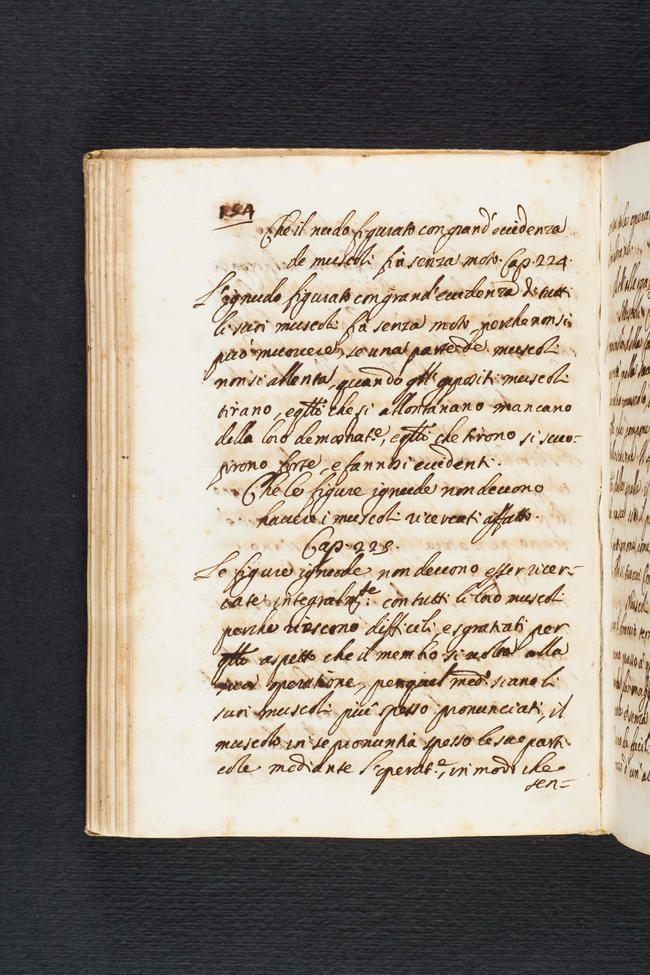 154
Che il nudo figurato con grand' euidenza
de muscoli fia senza moto. Cap. 224.
L'ignudo figurato con grand' euidenza di tutti
li suoi muscoli fia senza moto, perche non si
può muouere, se una parte de muscoli
non si allenta, quando gl'oppositi muscoli
tirano, e qlli che si allontanano mancano
della loro demostrat.e, e qlli che tirono si scuo-
prono forte, e fannosi euidenti.
Che le figure ignude non deuono
hauere i muscoli ricercati affatto.
Cap. 225.
Le figure ignude non deuono esser ricer-
cate integralm.te con tutti li loro muscoli
perche riescono difficili, e sgratiati per
qllo aspetto che il membo si uolta alla
sua operatione, per quel med.o siano li
suoi muscoli più spesso pronunciati, il
muscolo in se pronuntia spesso le sue parti-
cole mediante l'operat.e, in modo che
sen-